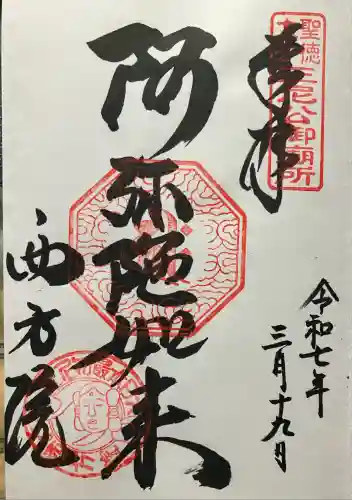 奉拝
聖徳
三尼公御廟所
阿弥陀如来
西方院
令和七年
三月十九日